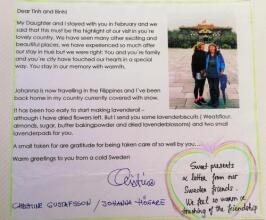 Dear Tinh and Binh)
My Daughter and I stayed with you in February and we
said that this must be the highlight of our visit in you're
lovely country. We have seen many other exciting and
beautiful places, we have experienced so much after
our stay in Hue but we were right: You and you're family
and you're city have touched our hearts in a special
way. You stay in our memory with warmth.
Johanna is now travelling in the Filippines and I've been
back home in my country currently covered with snow.
It has been too easy to start making lavendersil -
although I have dried flowers left. But I send you some lavenderbiscuits ( Weatflour,
almonds, sugar, butter bakingpowder and dried lavenderblossoms) and two small
lavenderpads for you.
A small token for are gratitude for being taken care of so well by you....
Warm greetings to you from a cold Sweden
Christina
CHRISTINE GUSTAFSSON / JOHANNA
Sweet presents
& letter from our
Sweden friends.
We feel so warm &
touching of the friendship